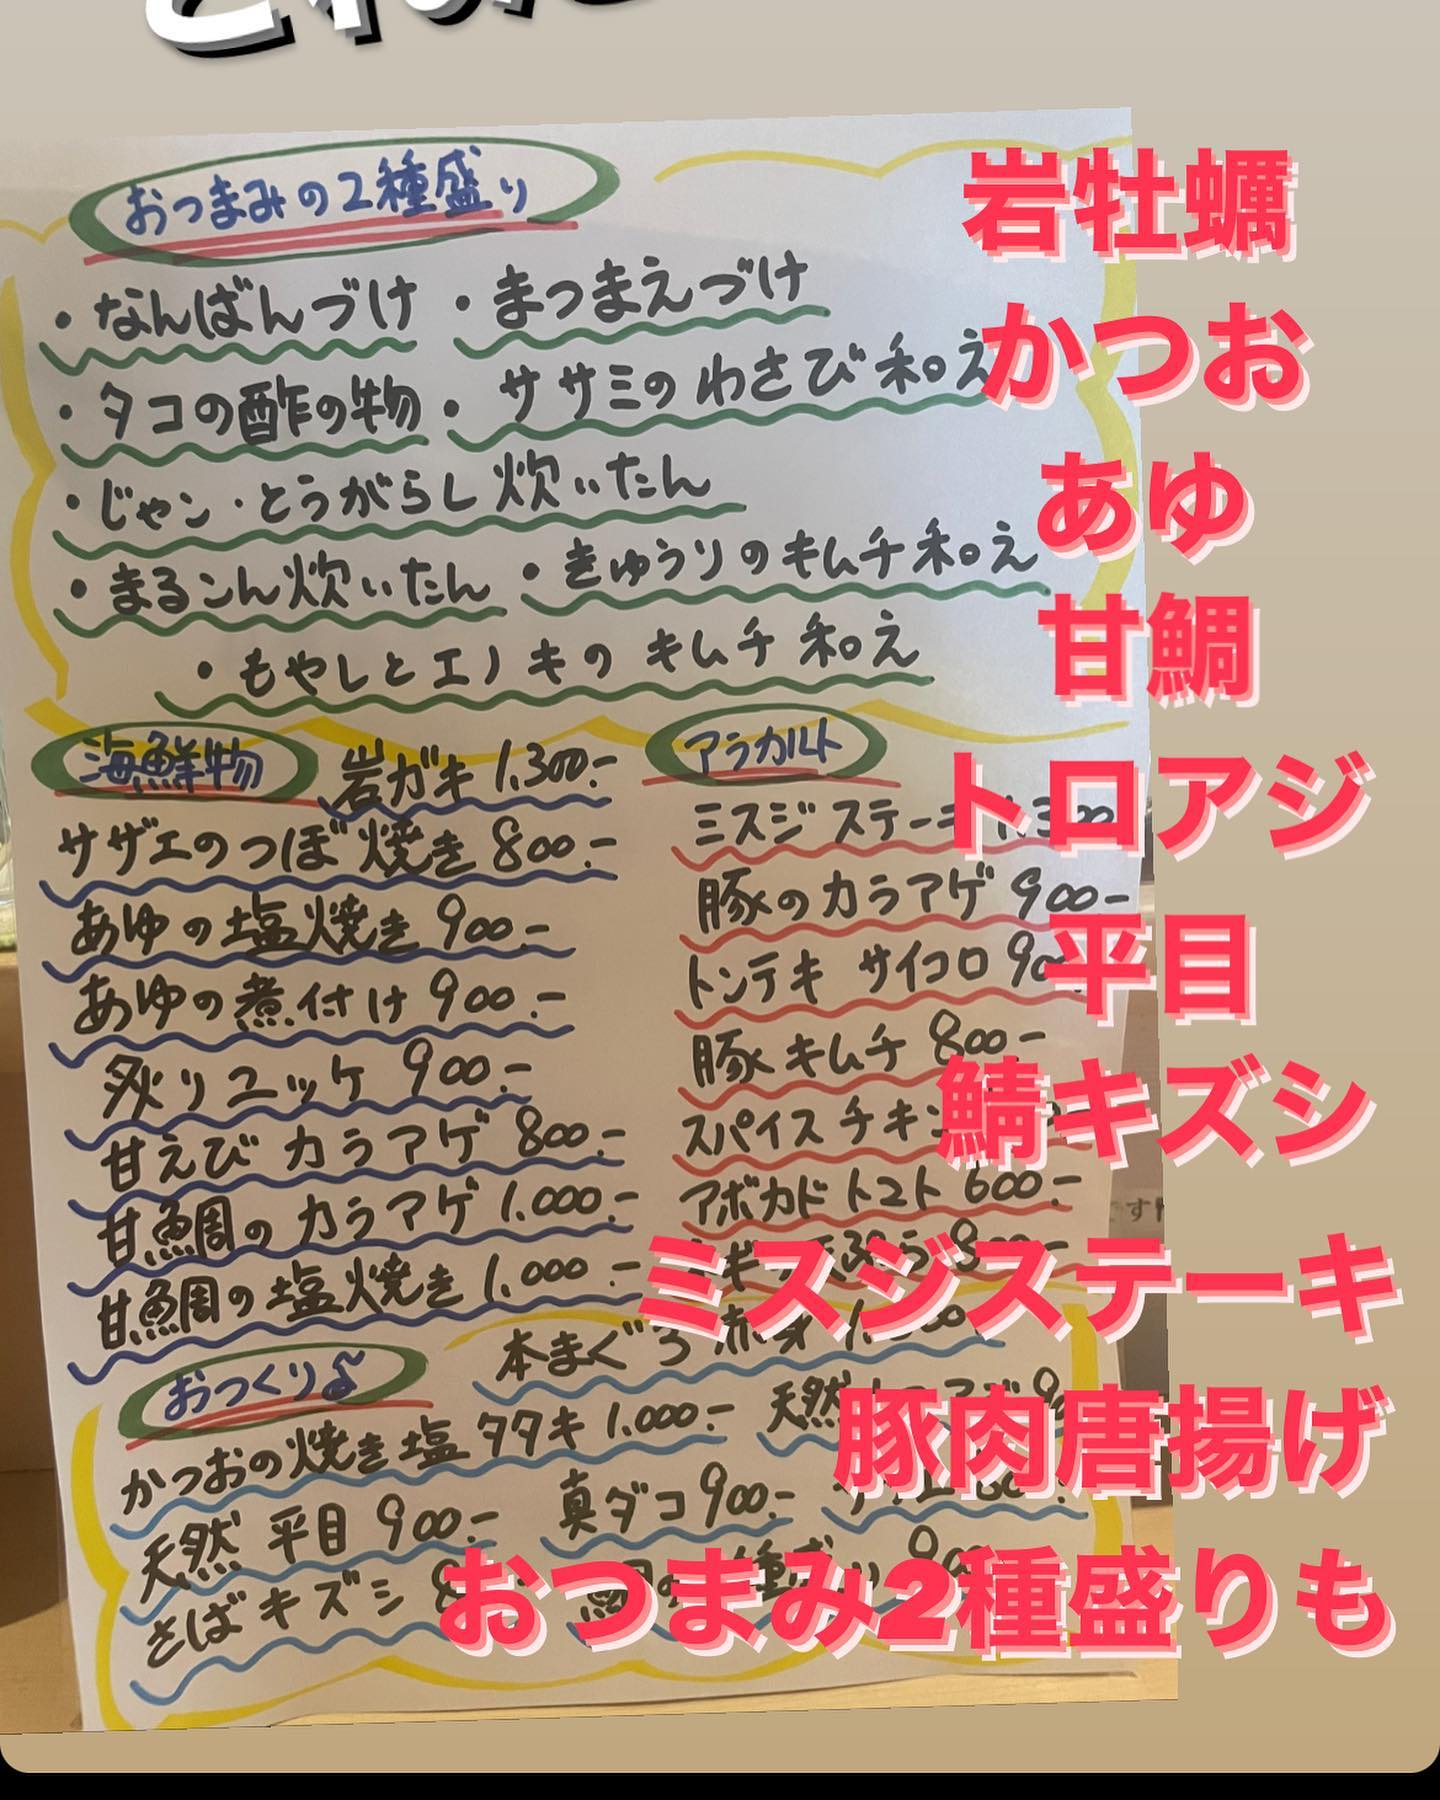 おつまみの2種盛り
・なんばんづけ ・まつまえづけ
・タコの酢の物 ・ササミのわさび和え
・じゃこ・とうがらし炊いたん
・まるこん炊いたん ・きゅうりのキムチ和え
・もやしとエノキのキムチ和え
海鮮物
岩ガキ 1.300.-
サザエのつぼ焼き 800.-
あゆの塩焼き 900.-
あゆの煮付け 900.-
炙りユッケ 900.-
甘えびカラアゲ 800.-
甘鯛のカラアゲ 1.000.-
甘鯛の塩焼き 1.000.-
アラカルト
ミスジステーキ
豚のカラアゲ 900-
トンテキ サイコロ
豚キムチ 800-
スパイスチキン
アボカドトマト 600.-
おつくり
本まぐろ 赤身
かつおの焼き塩タタキ 1.000.- 天然
天然 平目 900.- 真ダコ 900.-
さばキズシ
岩牡蠣
かつお
あゆ
甘鯛
トロアジ
平目
鯖キズシ
ミスジステーキ
豚肉唐揚げ
おつまみ2種盛りも